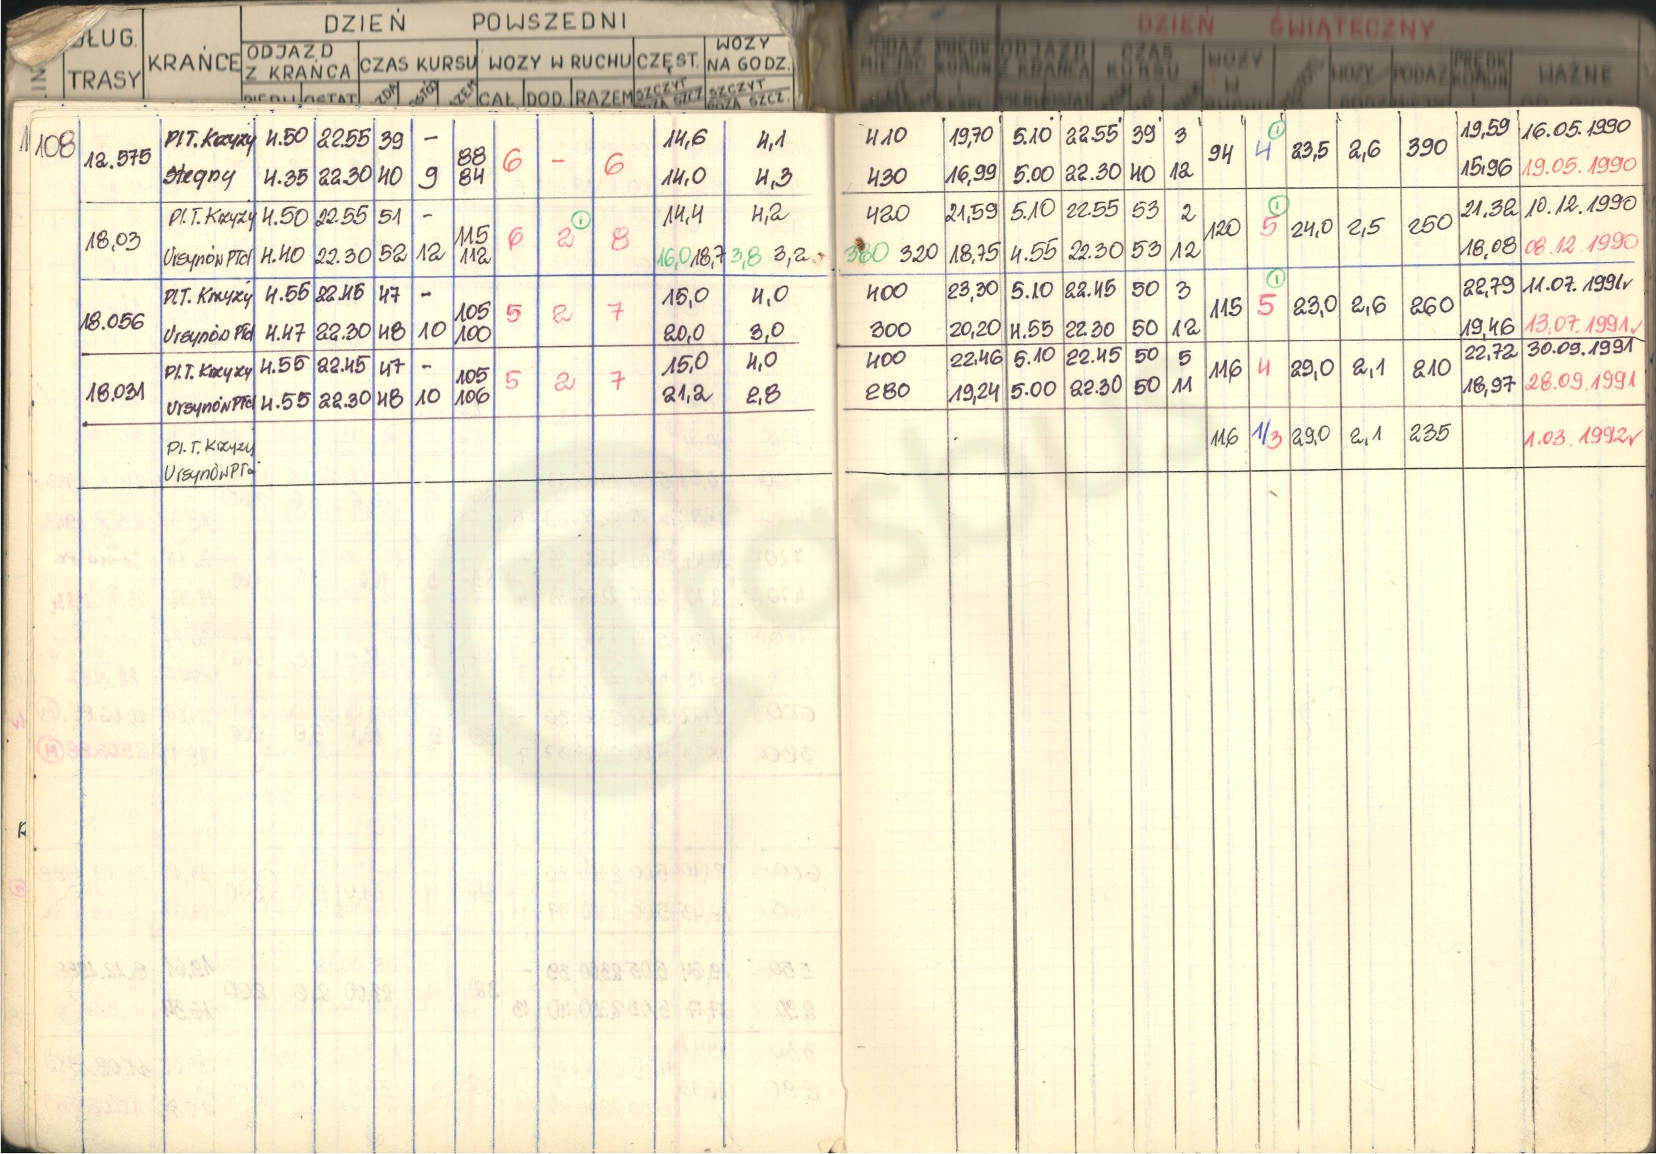 DZIEŃ POWSZEDNI DZIEŃ ŚWIĄTECZNY
DŁUG. TRASY KRAŃCE ODJAZD Z KRAŃCA CZAS KURSU WOZY W RUCHU CZĘST. WOZY NA GODZ. ODJAZD Z KRAŃCA CZAS KURSU WOZY W WOZY PODAŻ PRĘDK KOMUN WAŻNE
CAŁ. DOD. RAZEM SZCZYT POZA SZCZ. SZCZYT POZA SZCZ.
108 12.575 Pl.T. Krzyży 4.50 22.55 39 - 88 6 - 6 14,6 4,1 410 19,70 5.10 22.55 39 3 94 4 1 23,5 2,6 390 19,59 16.05.1990
Stegny 4.35 22.30 40 9 84 14,0 4,3 430 16,99 5.00 22.30 40 12 15,96 19.05.1990
18,03 Pl.T. Krzyży 4.50 22.55 51 - 115 6 2 1 8 14,4 4,2 420 21,59 5.10 22.55 53 2 120 5 1 24,0 2,5 250 21,32 10.12.1990
Ursynów Płd 4.40 22.30 52 12 112 16,0 18,7 3,8 3,2 380 320 18,75 4.55 22.30 53 12 18,08 08.12.1990
18.056 Pl.T. Krzyży 4.55 22.45 47 - 105 5 2 7 15,0 4,0 400 23,30 5.10 22.45 50 3 115 5 1 23,0 2,6 260 22,79 11.07.1991
Ursynów Płd 4.47 22.30 48 10 100 20,0 3,0 300 20,20 4.55 22.30 50 12 19,46 13.07.1991
18.031 Pl.T. Krzyży 4.55 22.45 47 - 105 5 2 7 15,0 4,0 400 22.46 5.10 22.45 50 5 116 4 29,0 2,1 210 22,72 30.09.1991
Ursynów Płd 4.55 22.30 48 10 106 21,2 2,8 280 19,24 5.00 22.30 50 11 18,97 28.09.1991
Pl.T. Krzyży 116 1/3 29,0 2,1 235 1.03.1992
Ursynów Płd